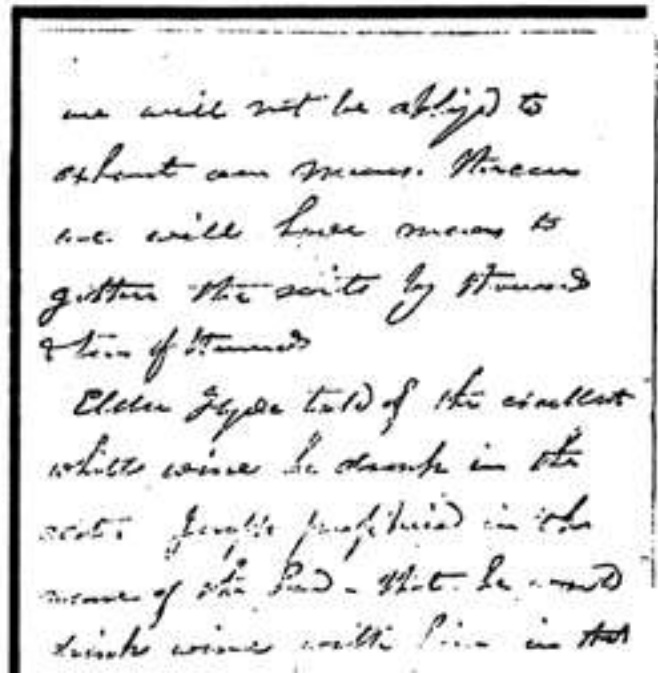 we will not be obliged to
exhaust our means. Hereon
we will have means to
gather the saints by thousands
& tens of thousands
Elder Hyde told of the excellent
white wine he drank in the
east. Joseph prophesied in the
name of the Lord - that he would
drink wine with him in that